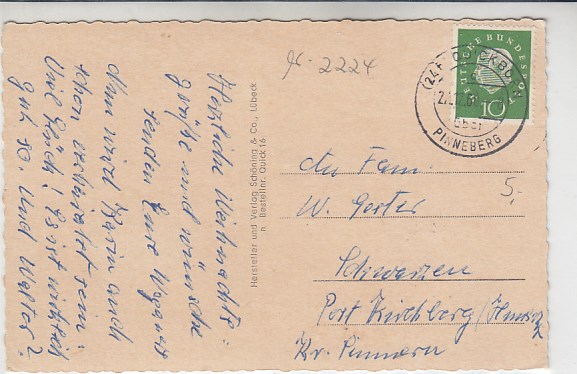 Herzliche Weihnachts-
grüße und wünsche
senden Eure Wegners
Nun wird Karin auch
schon verheiratet sein.
Viel Glück! Es ist wirklich
gut so. Und Walter?
Hersteller und Verlag Schöning & Co., Lübeck
n Bestellnr. Quick 16
gl-2224
DEUTSCHE BUNDESPOST
10
(24b)
PINNEBERG
5,-
An Fam
W. Gerter
Schwarzen
Post Kirchberg/Hunsrück
Kr. Simmern